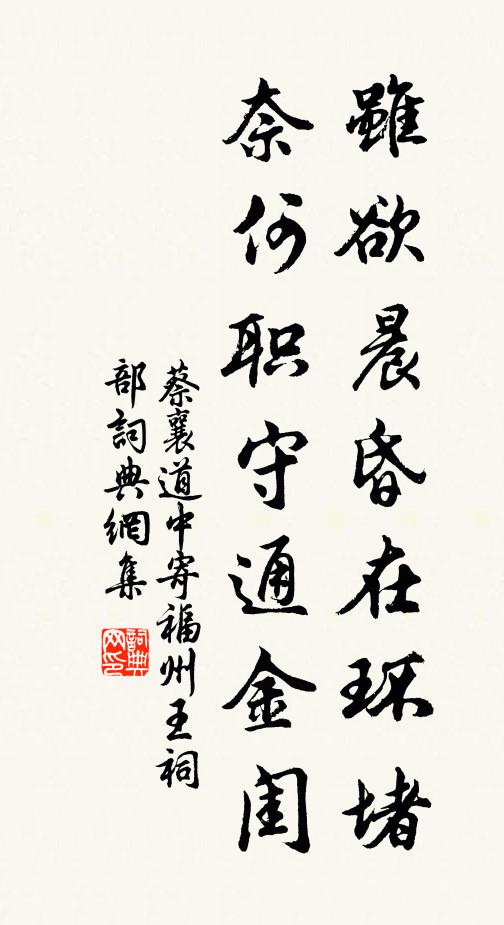 雖欲晨昏在环堵
奈何职守通金闺
蔡襄道中寄福州王祠
部詞典網集
詞典网印